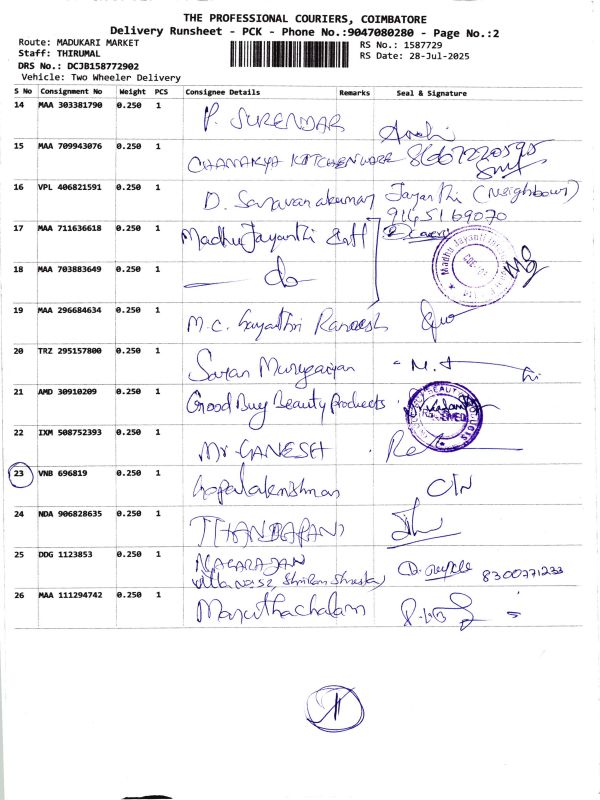 THE PROFESSIONAL COURIERS, COIMBATORE
Delivery Runsheet - PCK - Phone No.:9047080280 - Page No.:2
Route: MADUKARI MARKET
Staff: THIRUMAL
DRS No.: DCJB158772902
Vehicle: Two Wheeler Delivery
RS No.: 1587729
RS Date: 28-Jul-2025
S No Consignment No Weight PCS Consignee Details Remarks Seal & Signature
14 MAA 303381790 0.250 1 P. SURENDAR
15 MAA 709943076 0.250 1 CHANAKYA KITCHENWARE 8667220595
16 VPL 406821591 0.250 1 D. Saravanakumar Jayanthi (Neighbour)
9145169070
17 MAA 711636618 0.250 1 Madhu Jayanthi
18 MAA 703883649 0.250 1 do
19 MAA 296684634 0.250 1 M.C. Gayathri
20 TRZ 295157800 0.250 1 Saran Murugaiyan
21 AMD 30910209 0.250 1 Good Buy Beauty Products
22 IXM 508752393 0.250 1 Mr GANESH
23 VNB 696819 0.250 1 Gopalakrishnan
24 NDA 906828635 0.250 1 THANDAPANI
25 DDG 1123853 0.250 1 NAGARAJAN
8300771233
26 MAA 111294742 0.250 1 Maruthachalam